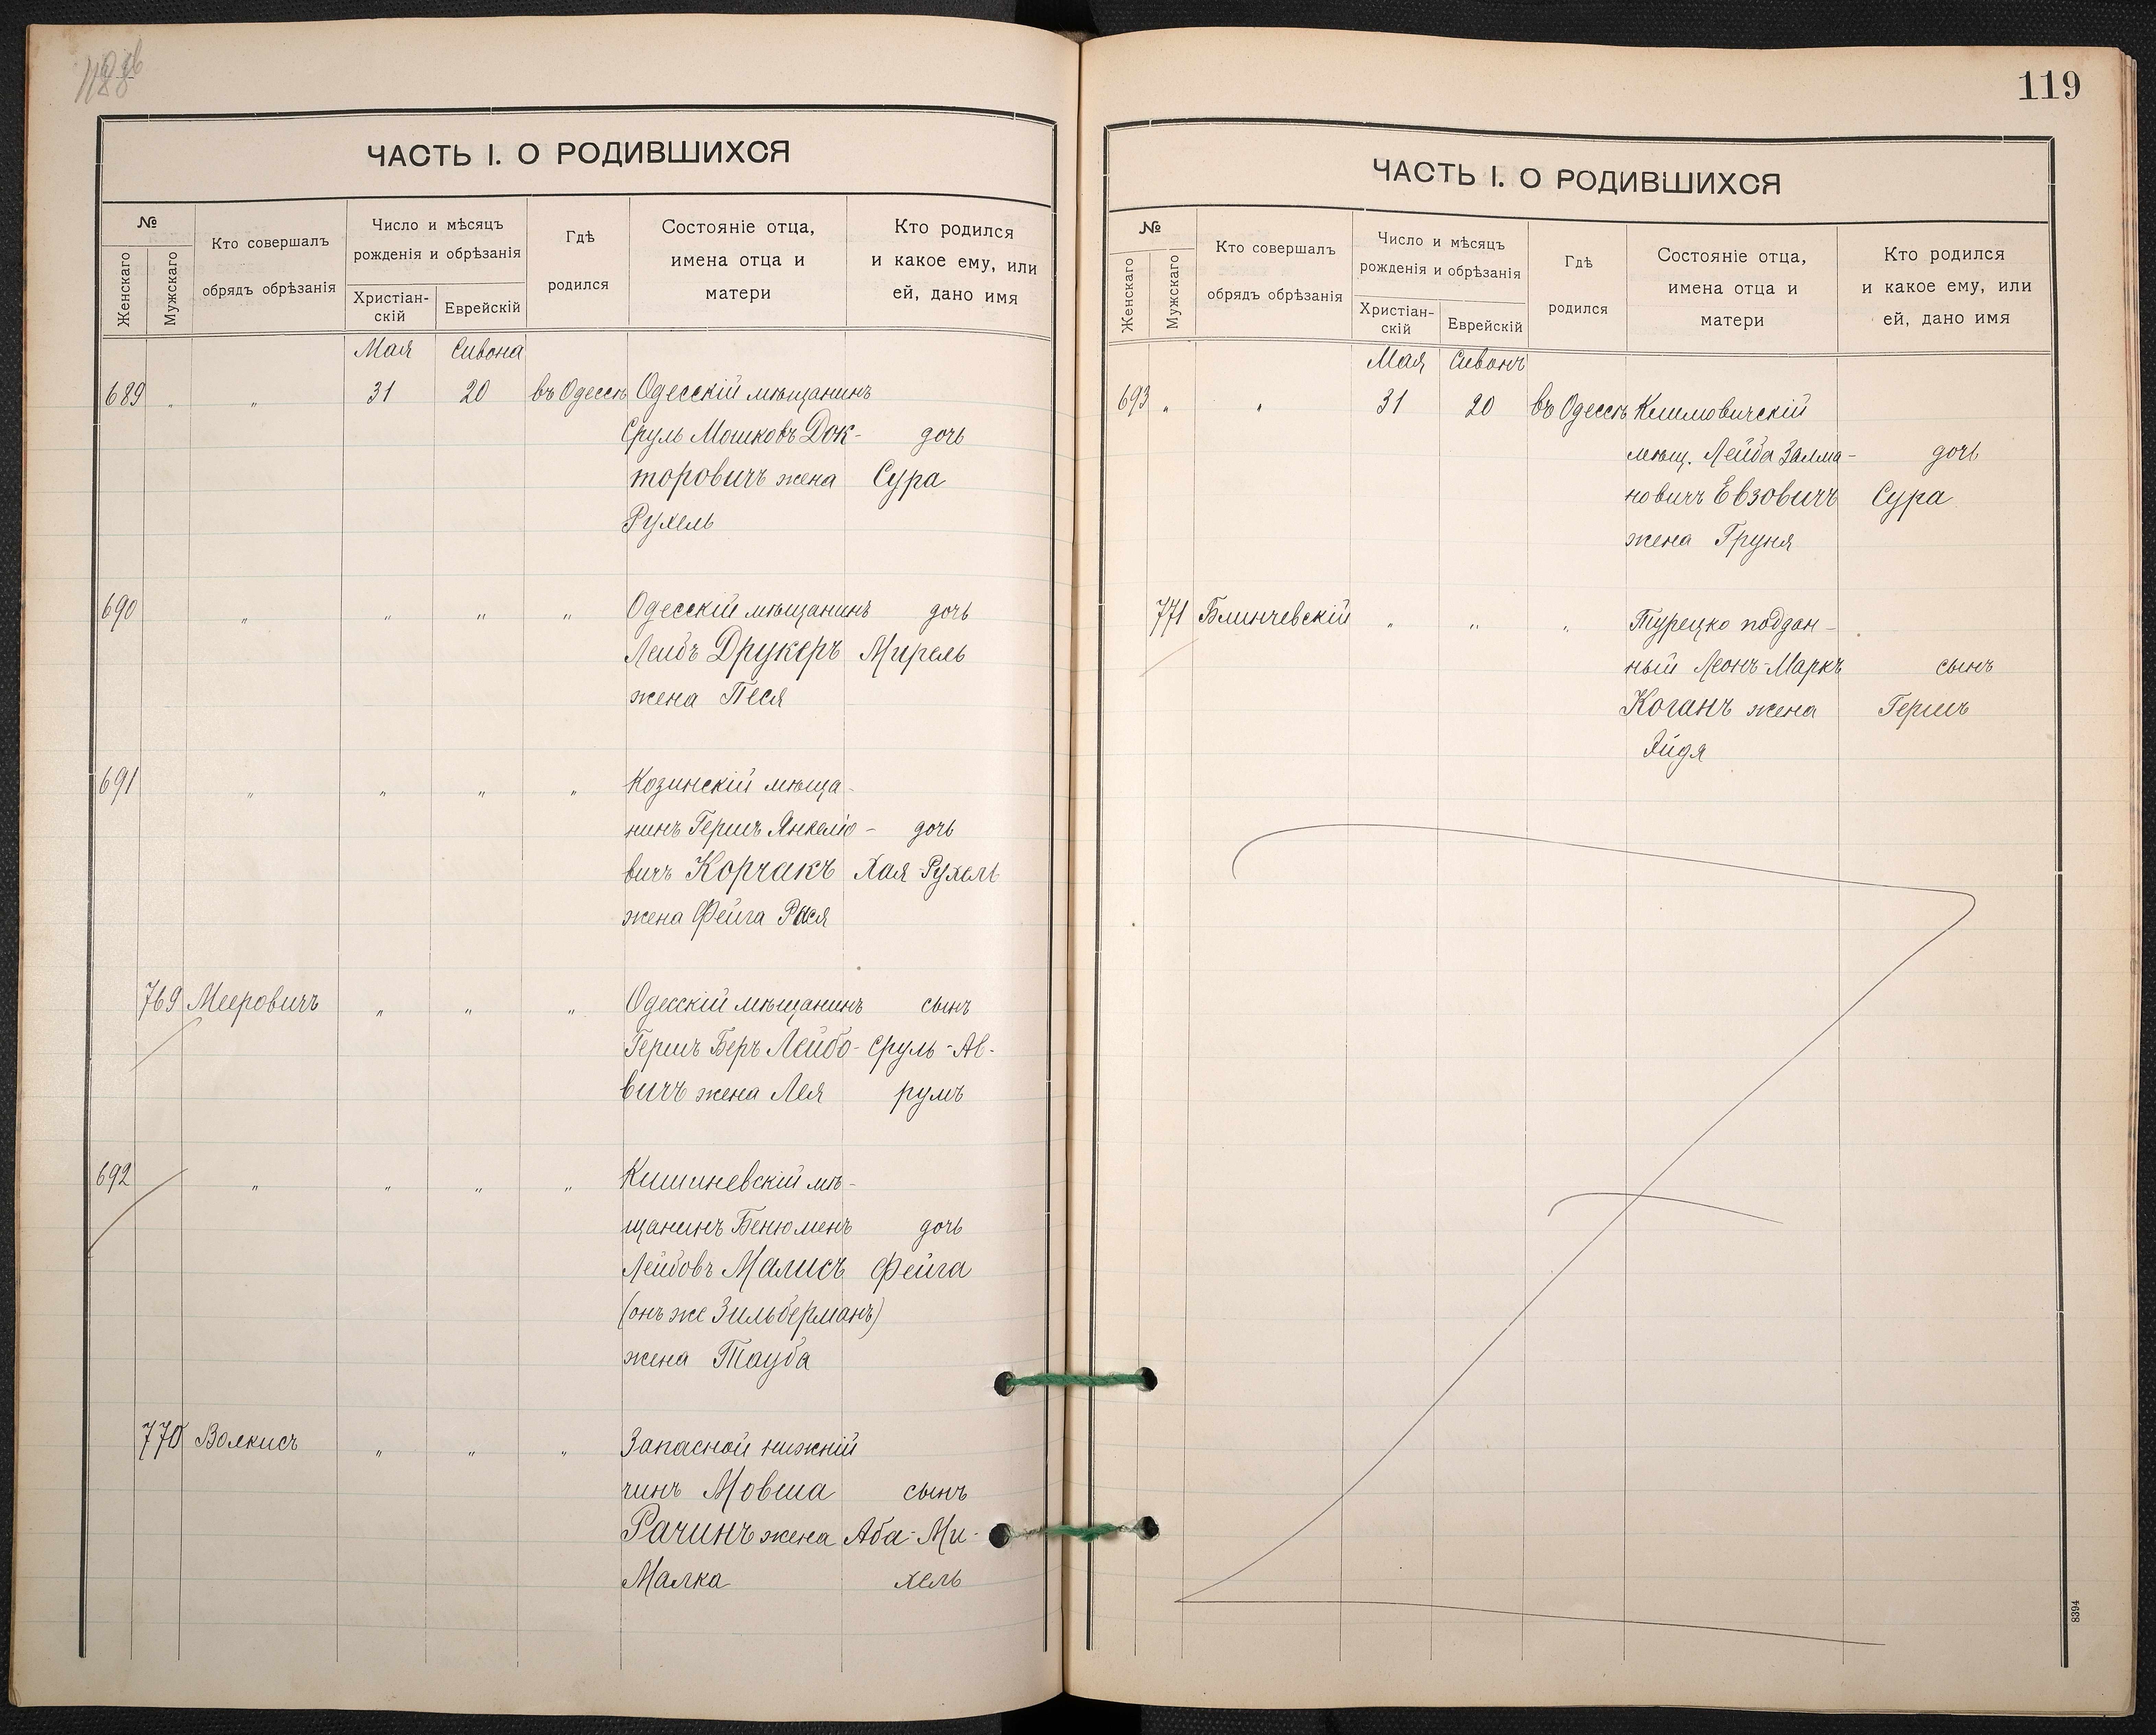 ЧАСТЬ I. О РОДИВШИХСЯ
№
Женскаго
Мужскаго
Кто совершалъ
обрядъ обрѣзанія
Число и мѣсяцъ
рожденія и обрѣзанія
Христіан-
скій
Еврейскій
Гдѣ
родился
Состояніе отца,
имена отца и
матери
Кто родился
и какое ему, или
ей, дано имя
Мая Сивона
689 " " 31 20 въ Одессѣ Одесскій мѣщанинъ
Сруль Мошковъ Док- дочь
торовичъ жена Сура
Рухель
690 " " " " Одесскій мѣщанинъ дочь
Лейбъ Друкеръ Мирель
жена Песя
691 " " " " Козинскій мѣща-
нинъ Гершъ Янкеліо- дочь
вичъ Корчакъ Хая-Рухель
жена Фейга Рися
769 Мееровичъ " " " Одесскій мѣщанинъ сынъ
Гершъ Беръ Лейбо- Сруль-Ав-
вичъ жена Лея румъ
692 " " " " Кишиневскій мѣ-
щанинъ Бенюменъ дочь
Лейбовъ Малисъ Фейга
(онъ же Зильберманъ)
жена Тауба
770 Волкисъ " " " Запасной нижній
чинъ Мовша сынъ
Рачинъ жена Аба-Ми-
Малка хель
119
ЧАСТЬ I. О РОДИВШИХСЯ
№
Женскаго
Мужскаго
Кто совершалъ
обрядъ обрѣзанія
Число и мѣсяцъ
рожденія и обрѣзанія
Христіан-
скій
Еврейскій
Гдѣ
родился
Состояніе отца,
имена отца и
матери
Кто родился
и какое ему, или
ей, дано имя
Мая Сивонъ
693 " " 31 20 въ Одессѣ Климовичскій
мѣщ. Лейба Залма- дочь
новичъ Евзовичъ Сура
жена Груня
771 Блинчевскій " " " Турецко поддан-
ный Леонъ-Маркъ сынъ
Коганъ жена Гершъ
Эйдя
8394